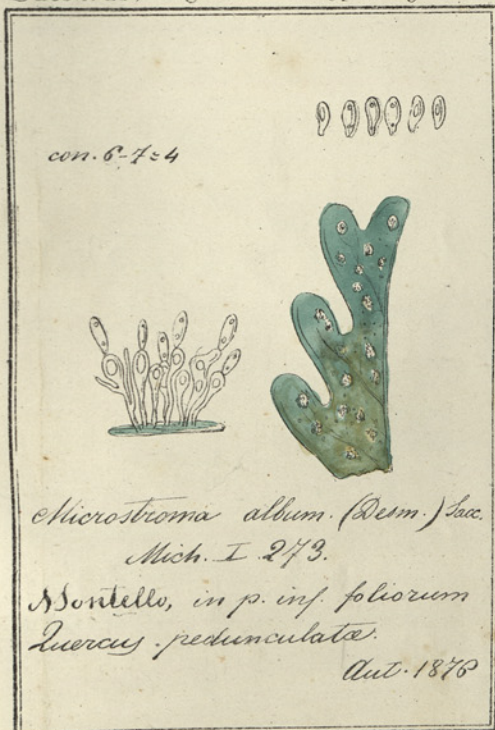 con. 6-7=4
Microstroma album. (Desm.) Sacc.
Mich. I. 273.
Montello, in p. inf. foliorum
Quercus pedunculatæ.
Aut. 1876